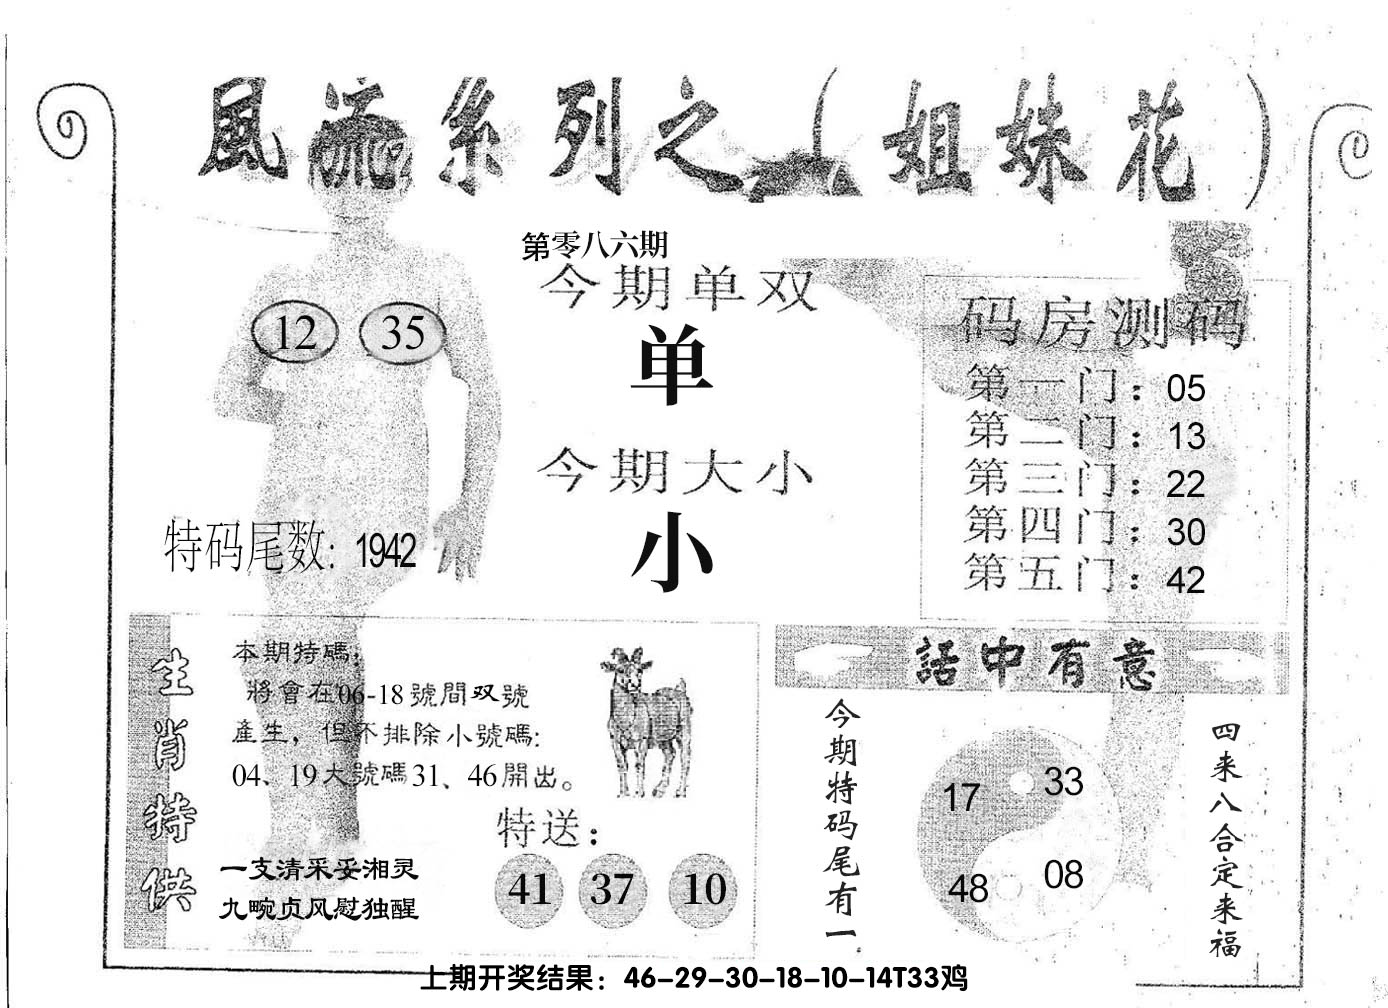 風流系列之（姐妹花）
第零八六期
今期单双
单
今期大小
小
12 35
特码尾数：1942
码房测码
第一门：05
第二门：13
第三门：22
第四门：30
第五门：42
生肖特供
本期特碼，
將會在06-18號間双號
產生，但不排除小號碼：
04、19大號碼31、46開出。
特送：
41 37 10
一支清采妥湘灵
九畹贞风慰独醒
話中有意
今期特码尾有一
17 33
48 08
四来八合定来福
上期开奖结果：46-29-30-18-10-14T33鸡